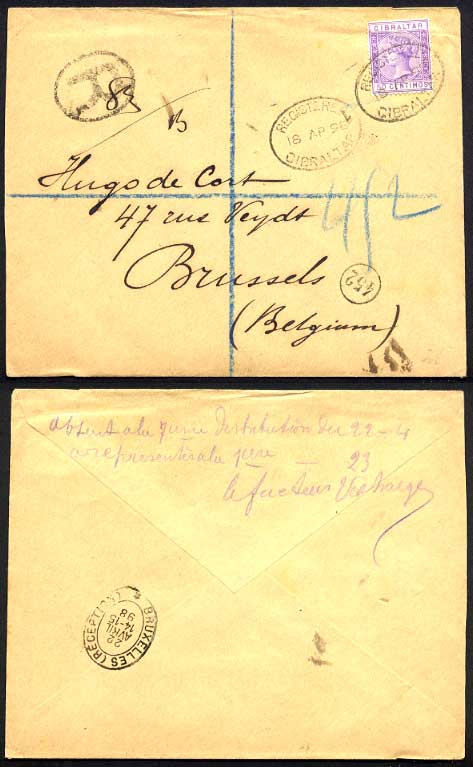 GIBRALTAR
50 CENTIMOS
REGISTERED
18 AP 98
GIBRALTAR
REGISTERED
18
GIBRALTAR
R
83
B
Hugo de Cort
47 rue Veydt
Brussels
(Belgium)
452
452
absent a la 7me Distribution du 22-4
a representer a la 1ere — 23
le facteur
BRUXELLES (RECEPTION)
22
AVRIL
14-15
98